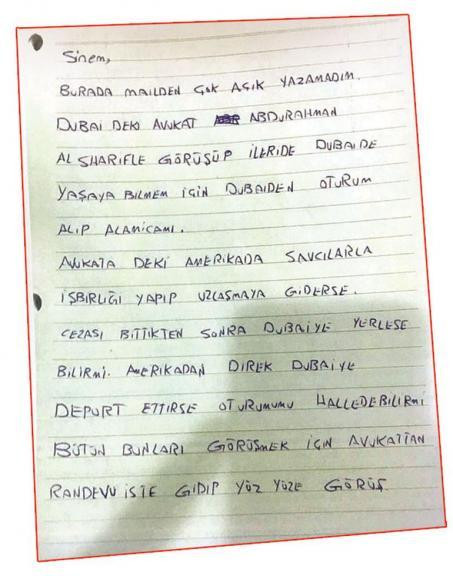 Sinem,
BURADA MAİLDEN ÇOK AÇIK YAZAMADIM.
DUBAİ DEKİ AVUKAT ABDURAHMAN
AL SHARİFLE GÖRÜŞÜP İLERİDE DUBAİDE
YAŞAYA BİLMEM İÇİN DUBAİDEN OTURUM
ALIP ALAMİCAMI.
AVUKATA DEKİ AMERİKADA SAVCILARLA
İŞBİRLİĞİ YAPIP UZLAŞMAYA GİDERSE.
CEZASI BİTTİKTEN SONRA DUBAİYE YERLEŞE
BİLİRMİ. AMERİKADAN DİREK DUBAİYE
DEPORT ETTİRSE OTURUMUMU HALLEDEBİLİRMİ
BÜTÜN BUNLARI GÖRÜŞMEK İÇİN AVUKATTAN
RANDEVU İSTE GİDİP YÜZ YÜZE GÖRÜŞ